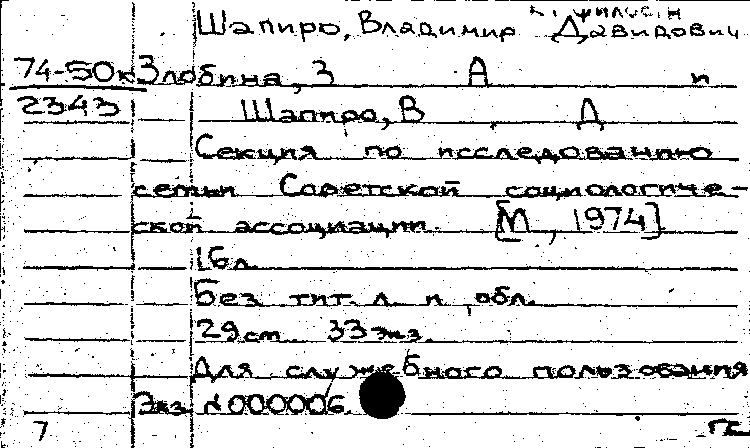 к. филос. н
Шапиро, Владимир Давидович
74-50к Злобина, З А и
2343 Шапиро, В Д
Секция по исследованию
семьи Советской социологиче-
ской ассоциации. [М, 1974]
16 л.
Без тит. л. и обл.
29 см 33 экз.
Для служебного пользования
Экз №000006.
7